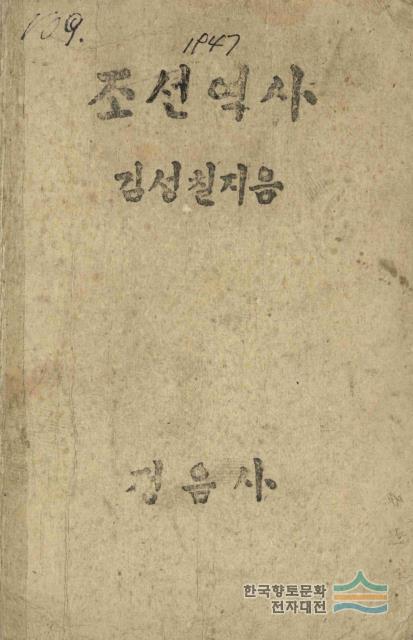 109.
1947
조선역사
김성칠지음
정음사
한국향토문화
전자대전